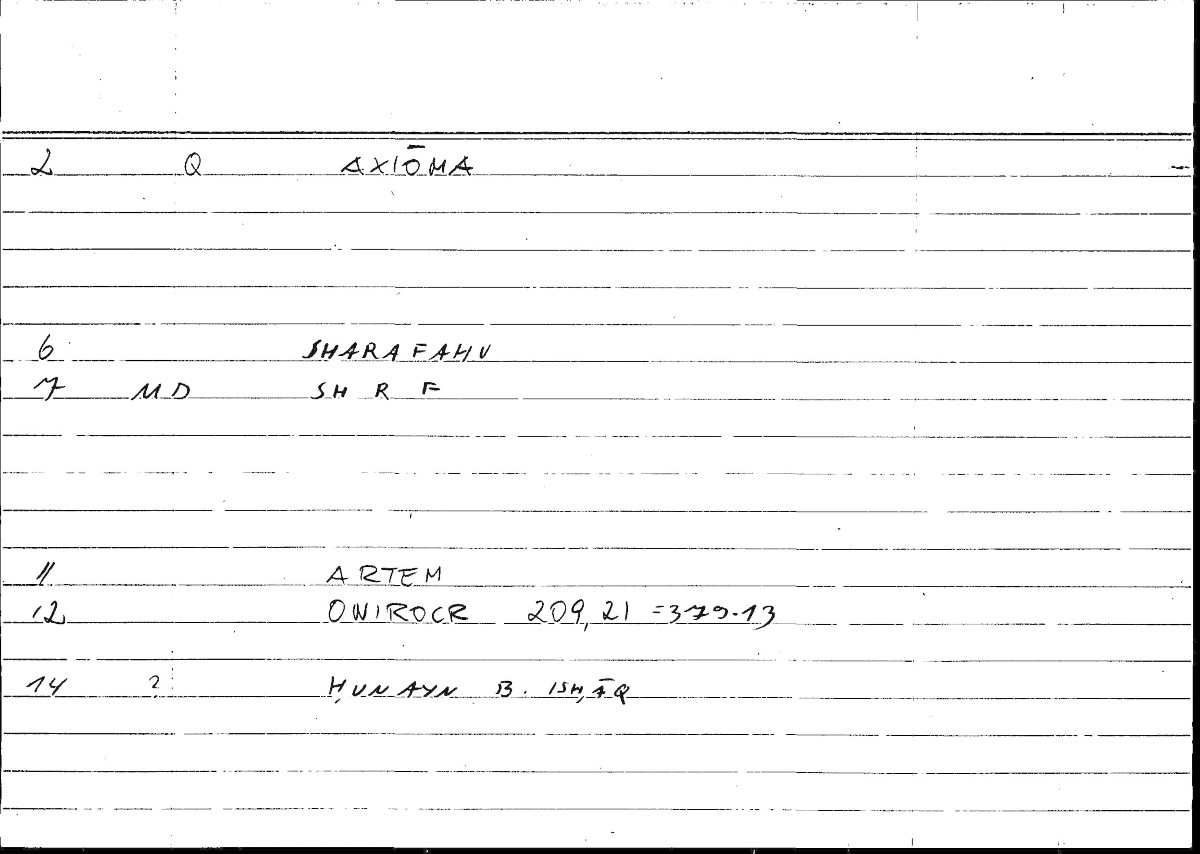 2 Q AXIŌMA -
6 SHARAFAHU
7 MD SH R F
11 ARTEM
12 ONIROCR 209,21 =379.13
14 ? ḤUNAYN B. ISḤĀQ